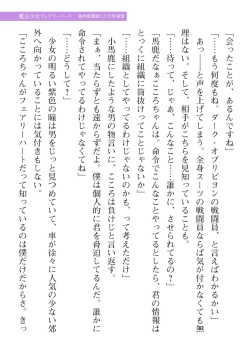 「会ったことが、あるんですね」
「……もう何度もね。ダーク・オブリビヨンの戦闘員、と言えばわかるかい」
　あっ――と声を上げてしまう。全身スーツの戦闘員ならば気が付かなくても無
理はない。そして、相手がこちらを見知っていることも。
「……待って。じゃあ、こんなこと……誰かに、させられてるの？」
「馬鹿だなぁこころちゃんは。命令でこんなことやってるとしたら、君の情報は
とっくに組織に筒抜けってことじゃないか」
「……組織としてやってるわけじゃないのかも、って考えただけ」
　小馬鹿にしたような男の物言いに、こころは負けじと言い返す。
「まぁ、当たらずとも遠からずだよ。僕は個人的に君を脅迫してるんだ。誰かに
命令されてやってるわけじゃなくてね」
「……どうして？」
　少女の明るい紫色の瞳は男をじっと見つめていて、車が徐々に人気の少ない郊
外へ向かっていることには気付きもしない。
「こころちゃんがフェアリーハートだって知っているのは僕だけだからさ。きっ